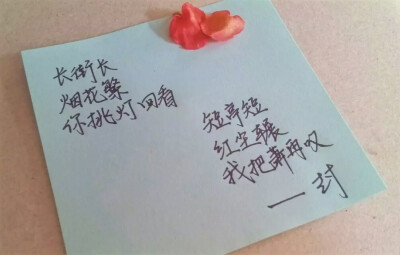 长街长
烟花繁
你挑灯回看
短亭短
红尘辗
我把萧再叹
—封